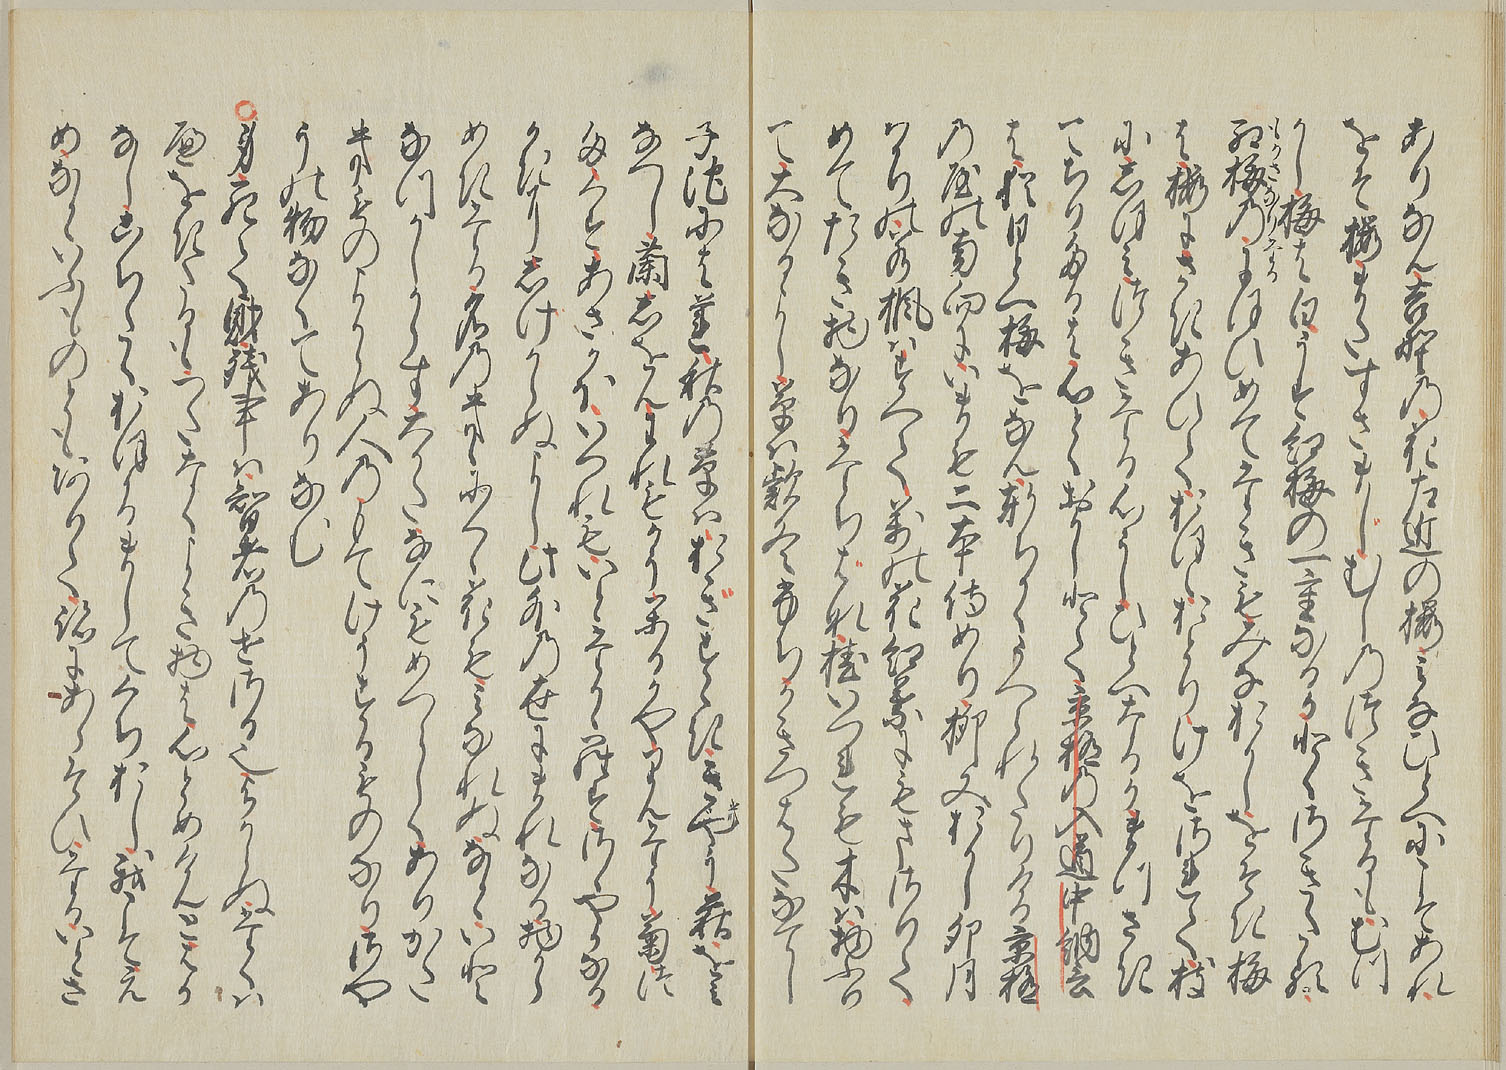 ありなん吉野の花左近の桜みなひとへにこそあれ
をそ桜またすさまじむしのつきたるもむつ
かし梅は白うす紅梅の一重なるかとくさきたる
もかさなりたる
紅梅のにほひめてたきもみなおかしをそき梅
は桜にさきあひておほえおとりけをされて枝
にしほみつきたる心うしひとへなるかまつさき
てちりたるは心とくおかしとて京極の入道中納言
は猶ひとへ梅をなん軒ちかくうへられたりける京極
の屋の南向にいまも二本侍めり柳又おかし卯月
はかりの若楓はすへて万の花紅葉にもさまりて
めてたき物なりたちばな桂いつれも木は物ふり
て大なるよし草は款冬ふちかきつはたなてし
子池には蓮秋の草はおぎすゝききちやう萩をみ
なへし蘭しをんわれもかうかるかやりんたう菊つ
たくすあさかほいつれもいとたかゝらすさゝやかなる
かきにしけからぬよし此外の世にまれなる物から
めきたる名のきゝにくゝ花もみなれぬなといと
なつかしからす大かたなにもめつらしくありかた
きものよからぬ人のもてけうするものなりさや
うの物なくてありなむ
身死して財残事は智者のせさる也よからぬたくは
へをきたるもつたなくよき物は心とめけんとはか
なしこちたくおほかるましてくちおし我こそえ
めなといふものともありて跡にあらそひたるいとさ